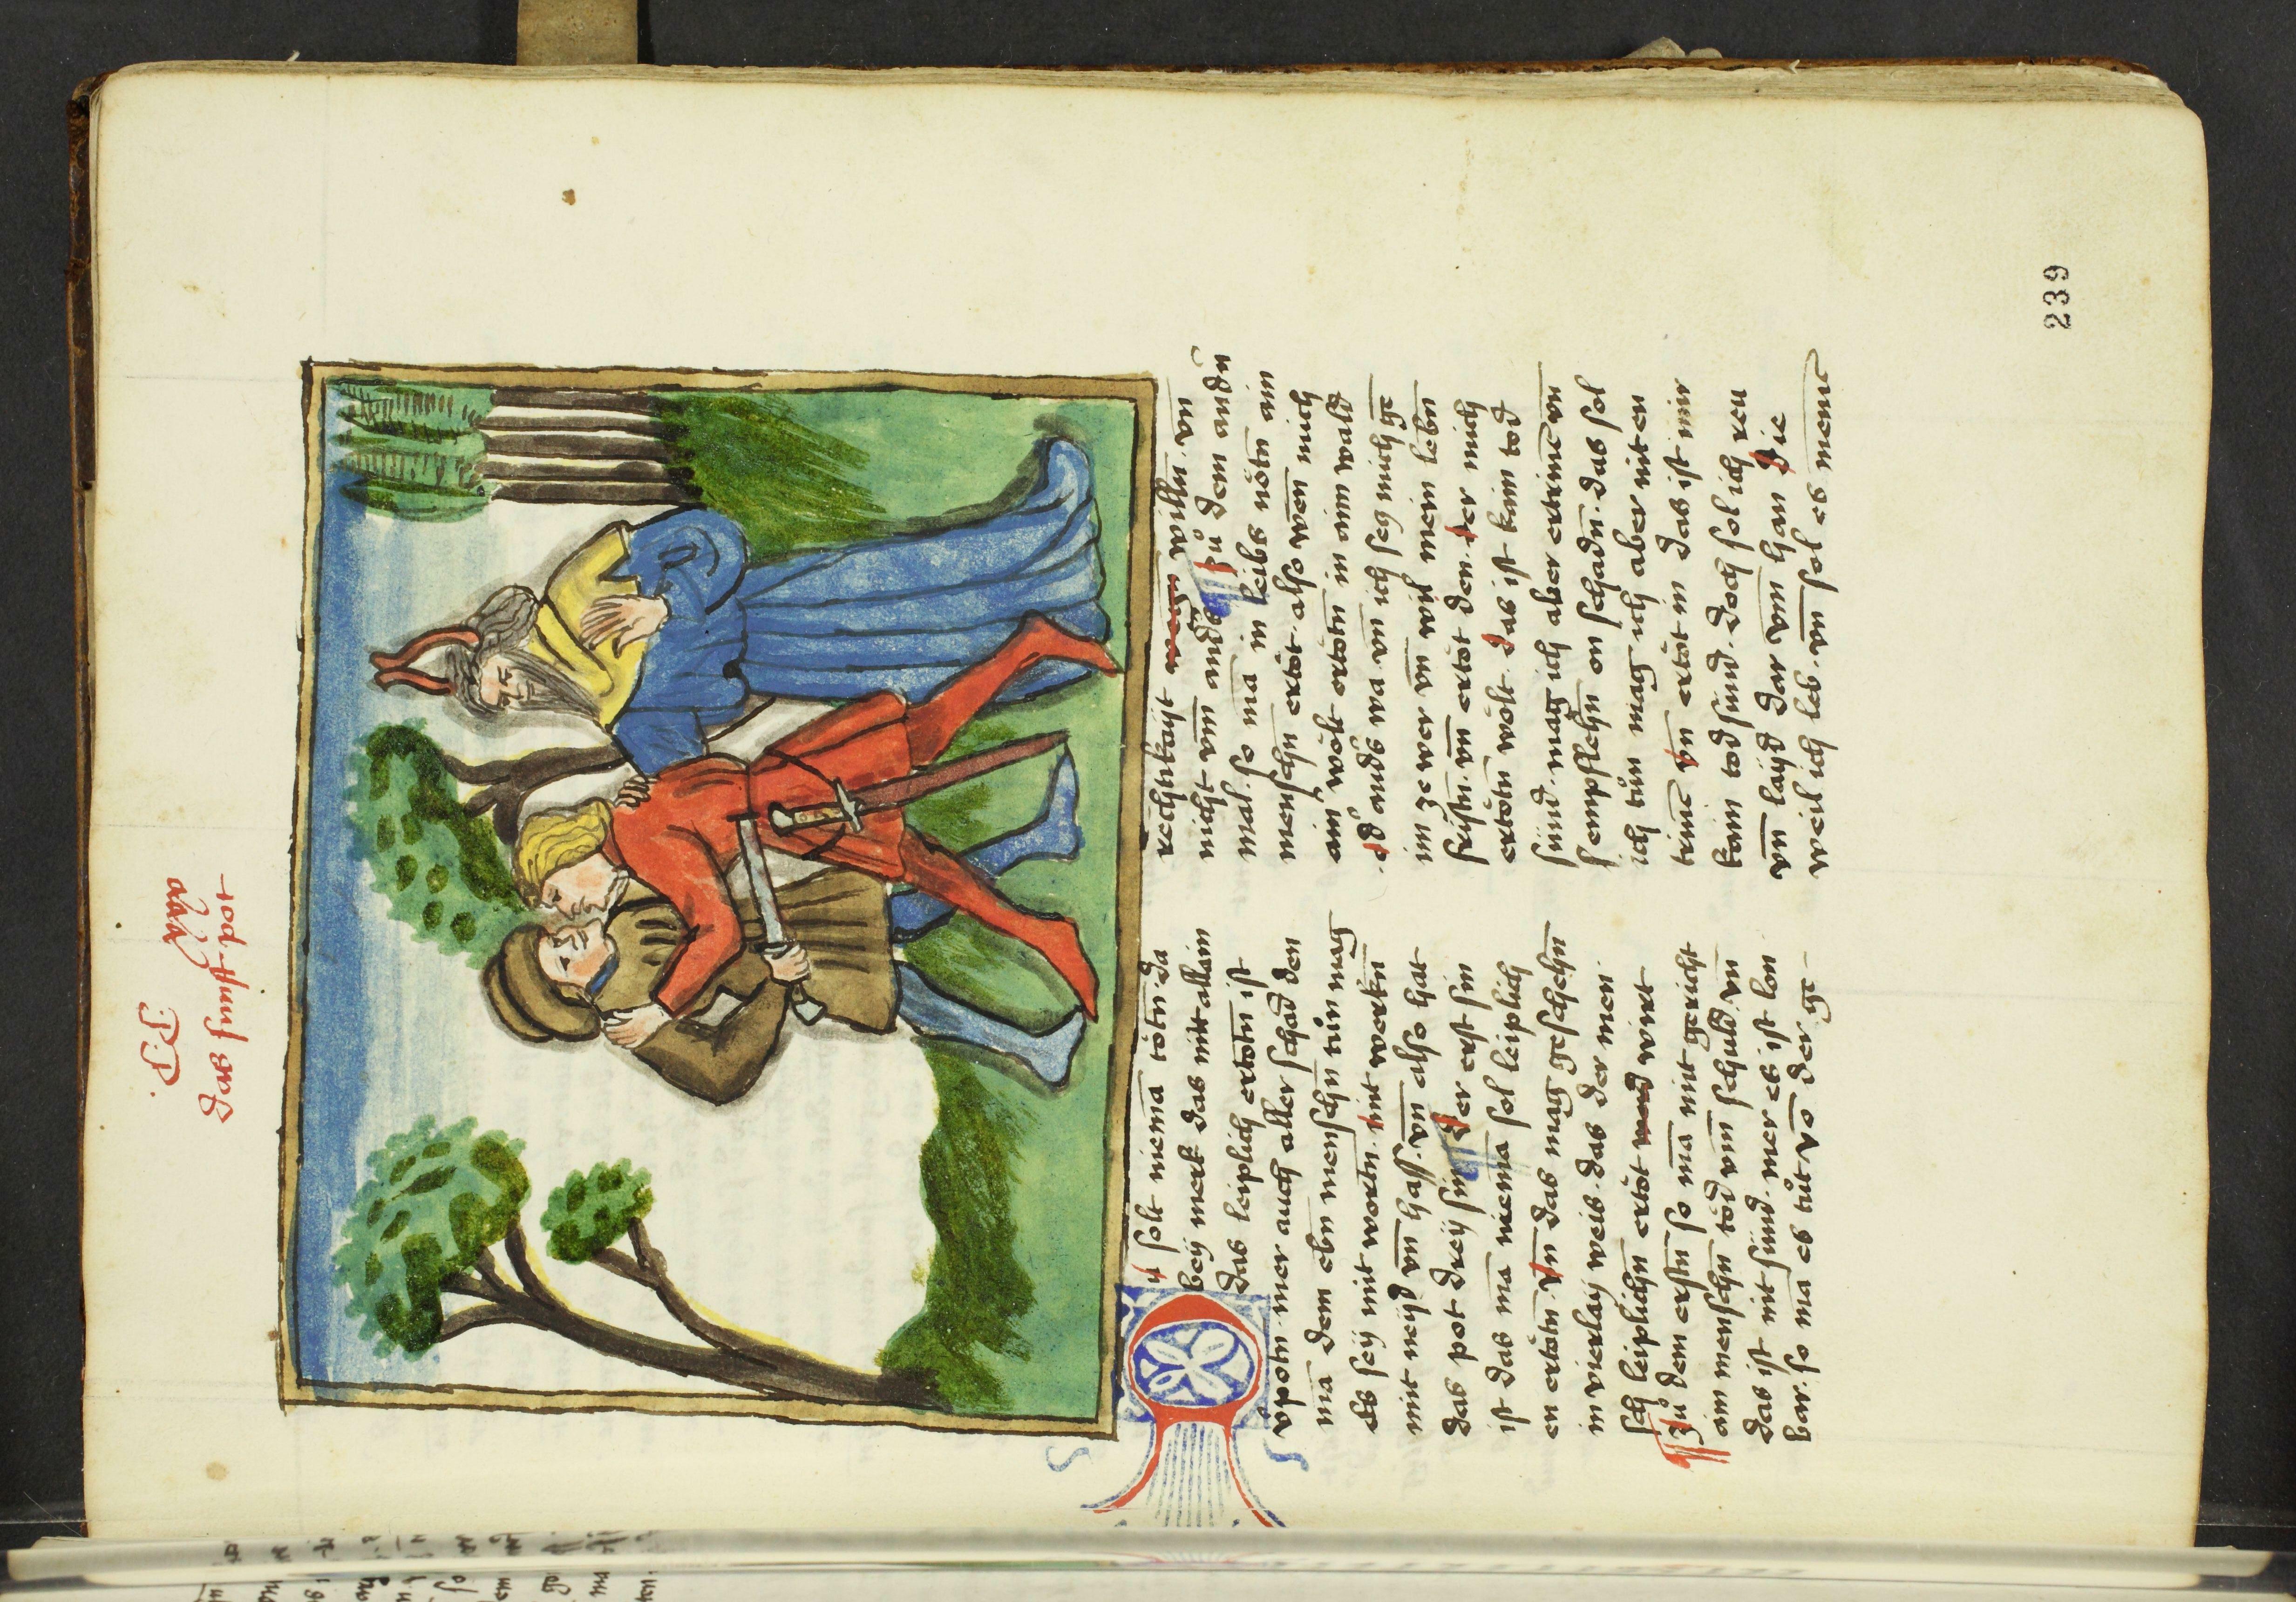 Das funft pot
Du solt niemā tötn̄ da
bey merk das nit allain
das leiplich ertötn̄ ist
v̊potn̄ mer auch aller schad den
mā dem ebn̄ menschn̄ tůn mag
Es sey mit wortn̄ mit werkn̄
mit neyd vn̄ hass. vn̄ also hat
das pot drey sin der erst sin
ist das mā niemā sol leiplich
en ertötn̄ vn̄ das mag geschehn̄
in vierlay weis. das der men
sch leiplichn̄ ertöt werd wirt
Zů dem erstn̄ so mā mit gericht
ain menschn̄ töd vm̄ schuld vn̄
das ist nit sünd. mer es ist lon
bar. so mā es tůt vō der ge-
rechtikayt wegn willn̄. vn̄
nicht vm̄ anders Zů dem andn̄
mal. so mā in leibs nötn̄ ain
menschn̄ ertöt. also wen̄ mich
ain̄ wölt ertötn̄ in aim wald
od' anders wa vn̄ ich sey mich ge
in ze wer vn̄ wil mein lebn̄
fristn̄. vn̄ ertöt den. der mich
ertötn̄ wölt. das ist kain tod
sünd. mag ich aber ertrinē vn̄
empflehn̄ on schadn̄. das sol
ich tůn mag ich aber nit en
trinē vn̄ ertöt in das ist mir
kain tod sünd. doch sol ich reu
vn̄ layd dar vm̄ han die
weil ich leb. vn̄ sol es menē
239